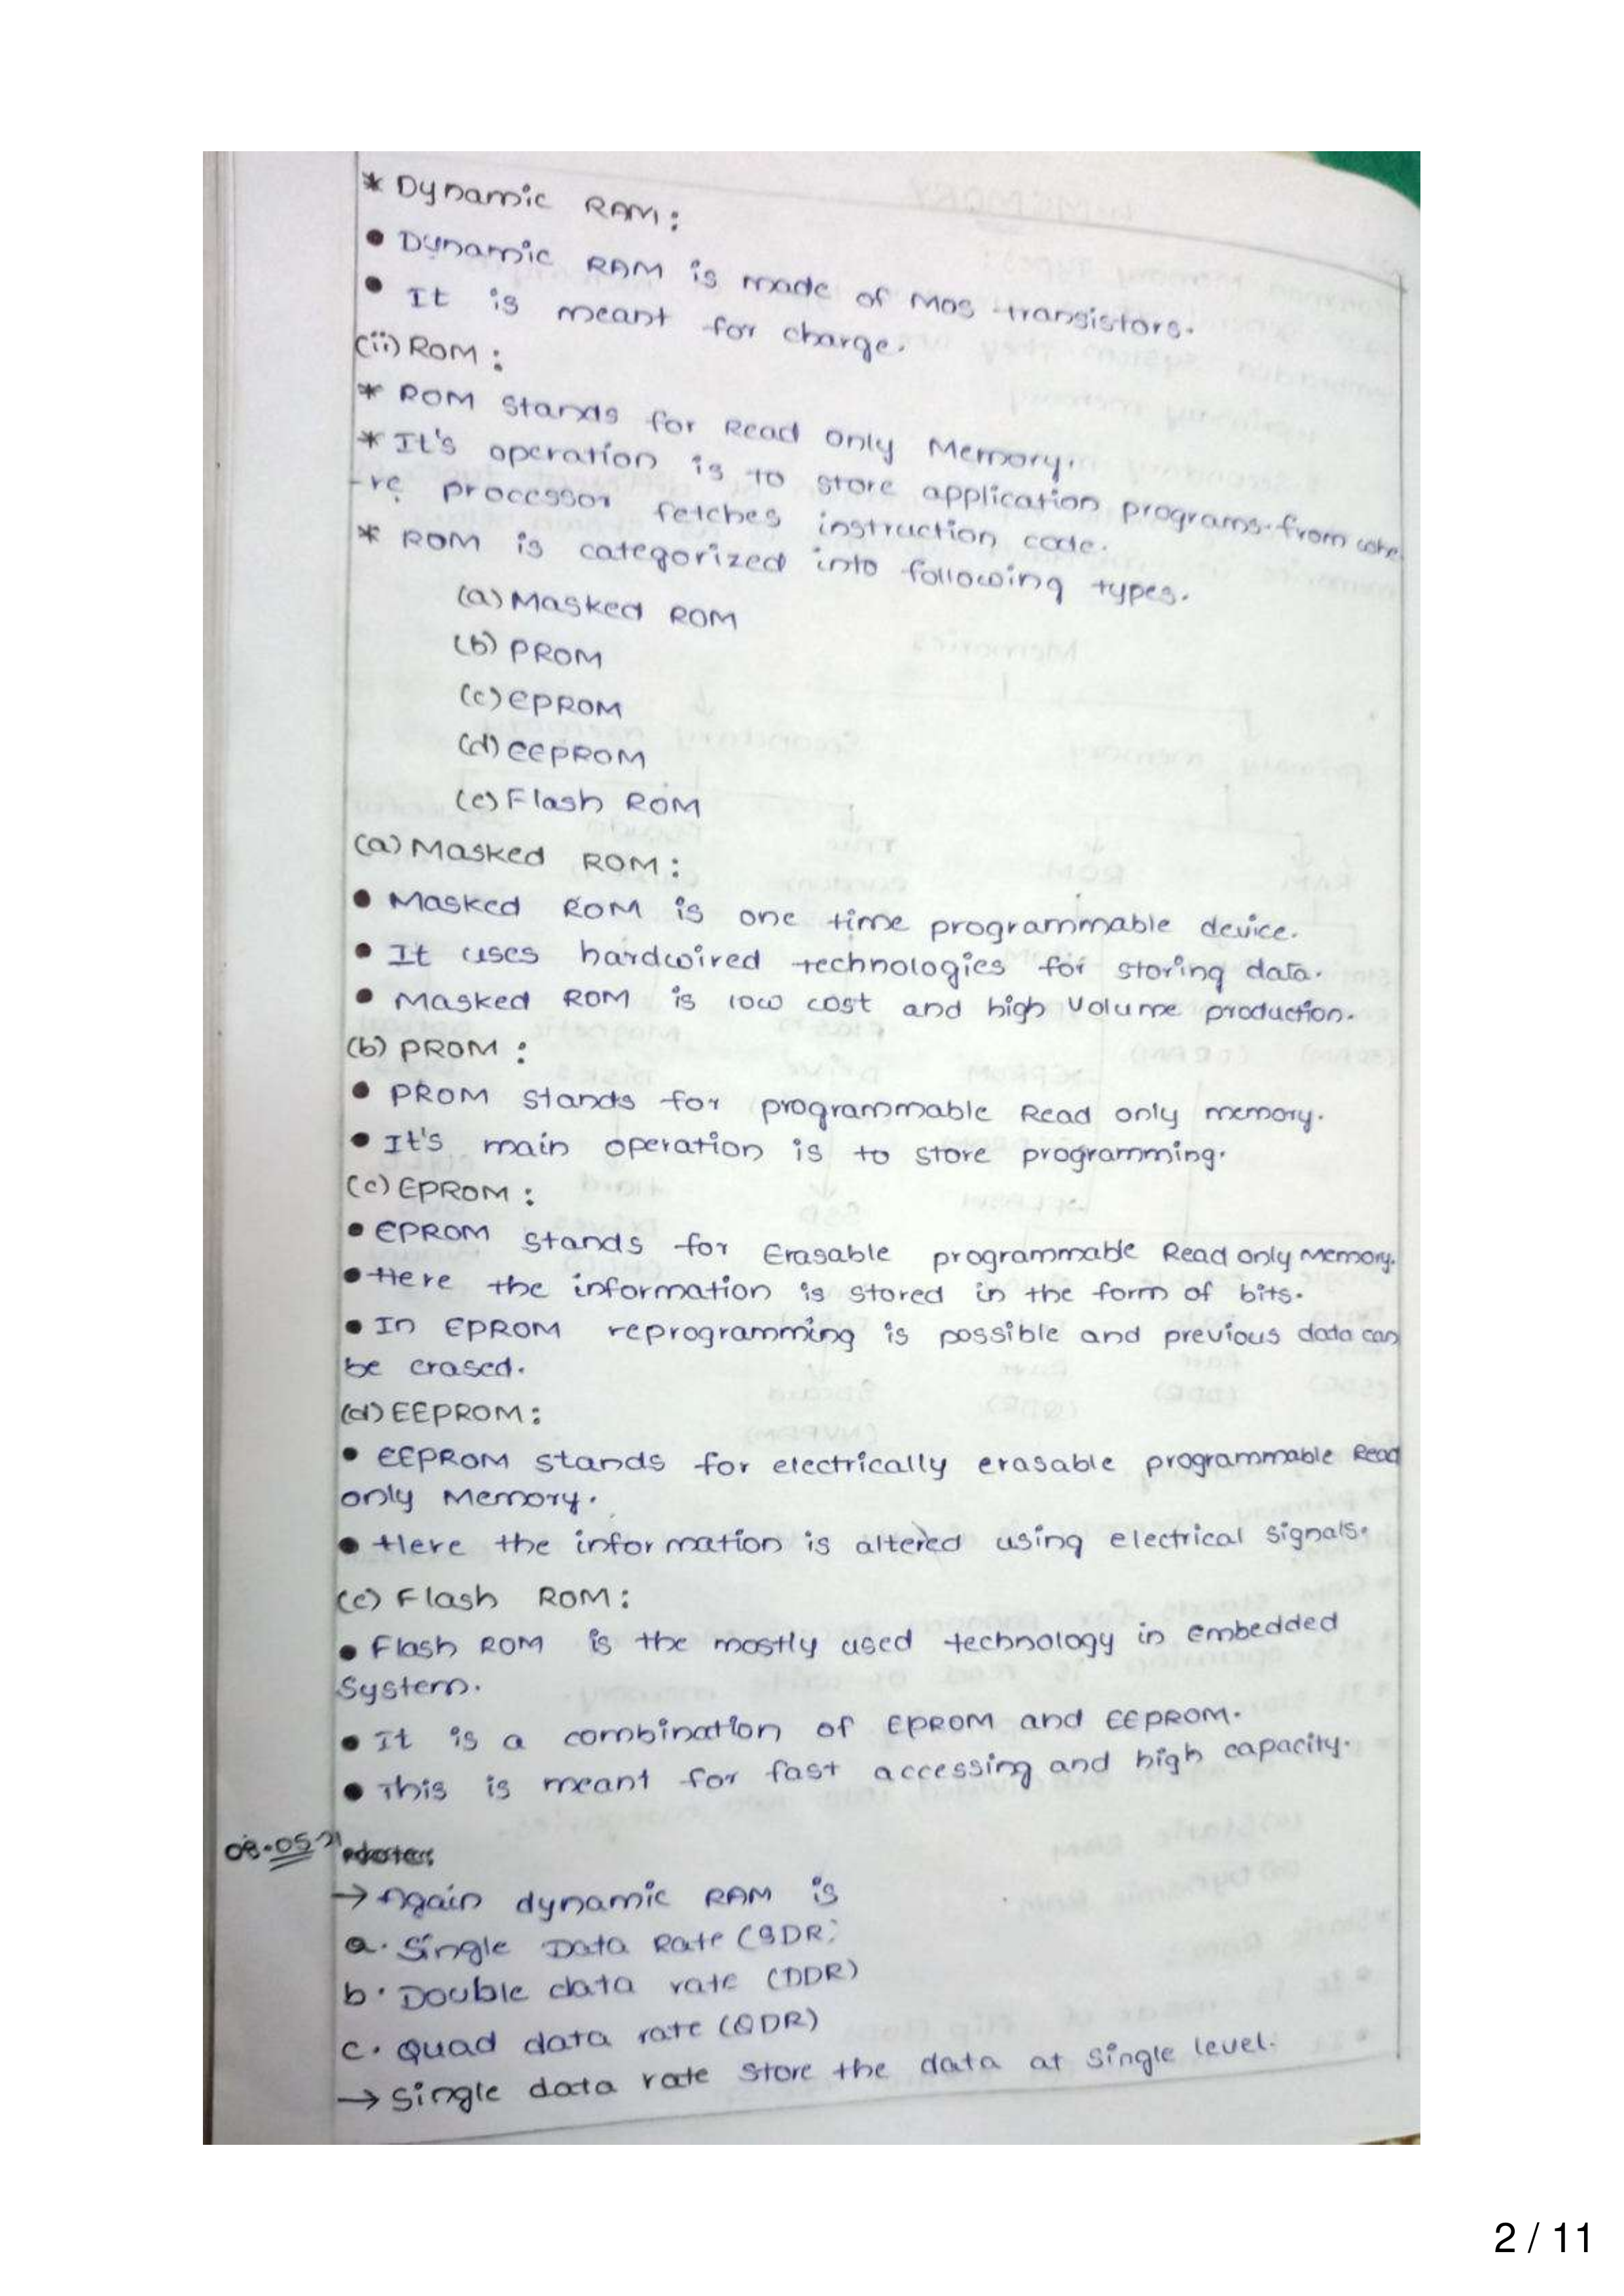 * Dynamic RAM:
• Dynamic RAM is made of Mos transistors.
• It is meant for charge.
(ii) ROM:
* ROM stands for Read only Memory.
* It's operation is to store application programs. from whe
-re processor fetches instruction code.
* ROM is categorized into following types.
(a) Masked ROM
(b) PROM
(c) EPROM
(d) EEPROM
(e) Flash ROM
(a) Masked ROM:
• Masked ROM is one time programmable device.
• It uses hardwired technologies for storing data.
• Masked ROM is low cost and high Volume production.
(b) PROM:
• PROM stands for programmable Read only memory.
• It's main operation is to store programming.
(c) EPROM:
• EPROM stands for Erasable programmable Read only Memory.
• Here the information is stored in the form of bits.
• In EPROM reprogramming is possible and previous data can
be erased.
(d) EEPROM:
• EEPROM stands for electrically erasable programmable Read
only Memory.
• Here the information is altered using electrical signals.
(e) Flash ROM:
• Flash ROM is the mostly used technology in embedded
System.
• It is a combination of EPROM and EEPROM.
• This is meant for fast accessing and high capacity.
08.05.21
→ Again dynamic RAM is
a. Single Data Rate (SDR)
b. Double data rate (DDR)
c. Quad data rate (QDR)
→ Single data rate store the data at single level.
2 / 11